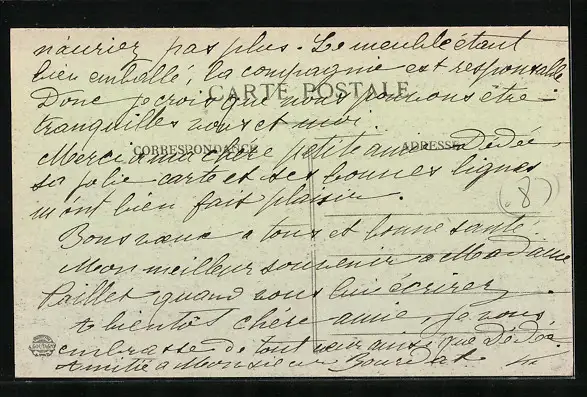 n'auriez pas plus. Le meuble étant
bien emballé, la compagnie est responsable
CARTE POSTALE
Donc je crois que nous pouvons être
tranquilles vous et moi.
CORRESPONDANCE ADRESSE
Merci à ma chère petite amie Dédée
sa jolie carte et ses bonnes lignes
m'ont bien fait plaisir.
(8)
Bons vœux à tous et bonne santé.
Mon meilleur souvenir à Madame
Paillet quand vous lui écrirez.
A bientôt chère amie, je vous
embrasse de tout cœur ainsi que Dédée
Amitié à Monsieur Bourdat